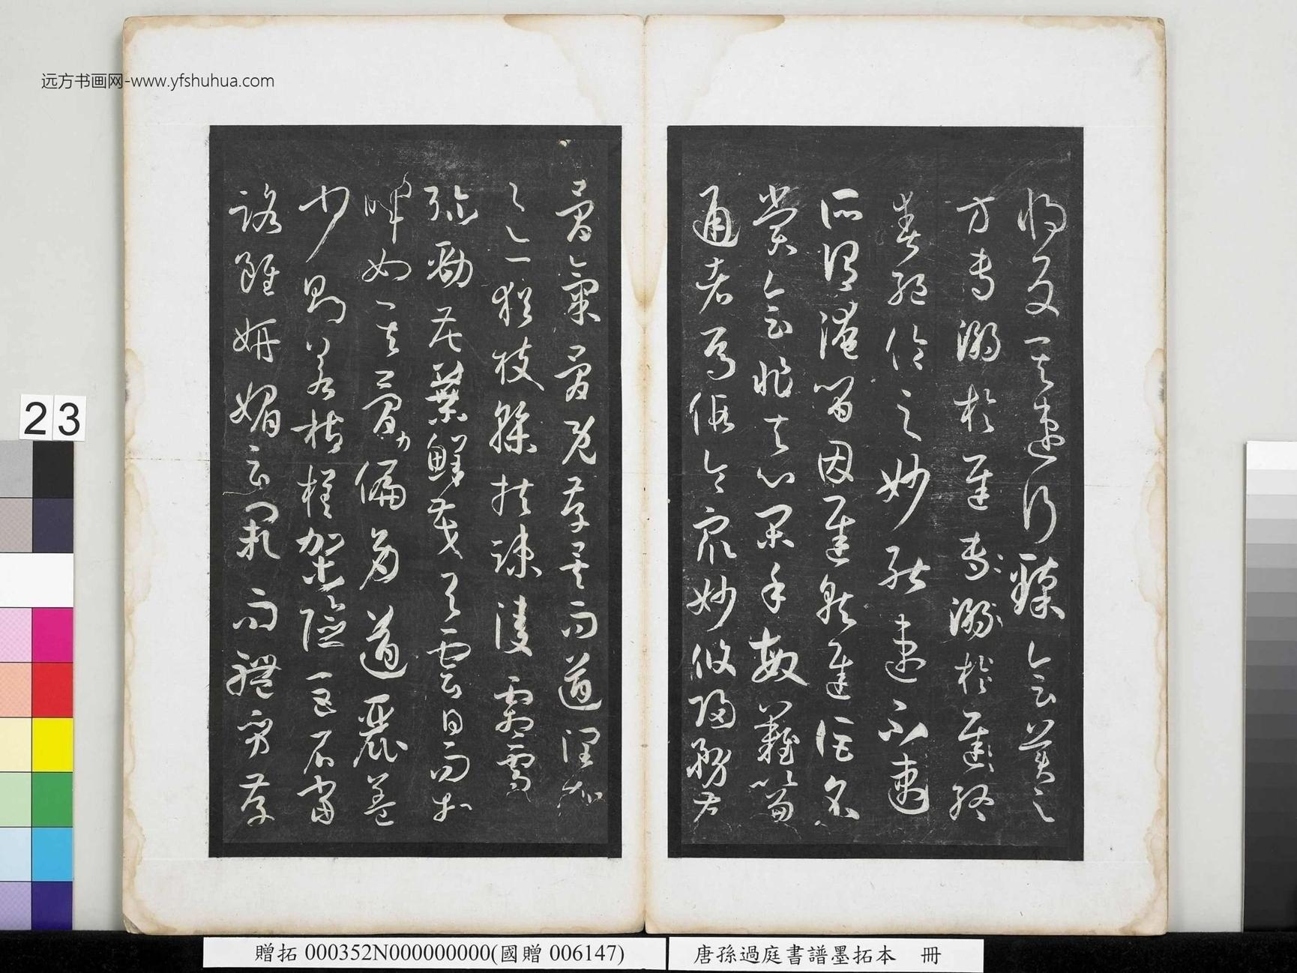 远方书画网-www.yfshuhua.com
將反其速行臻會美之
方專溺於遲專溺於遲終
爽絕倫之妙能速不速
所謂淹留因遲就遲詎名
賞會非夫心閑手敏難以兼
通者焉假令眾妙攸歸務存
骨氣骨既存矣而遒潤加
之亦猶枝幹扶疎凌霜雪而
彌勁花葉鮮茂與雲日而相
暉如其骨力偏多遒麗蓋
少則若枯槎架險巨石當
路雖妍媚云闕而體質存
23
贈拓 000352N000000000(國贈 006147)
唐孫過庭書譜墨拓本 冊